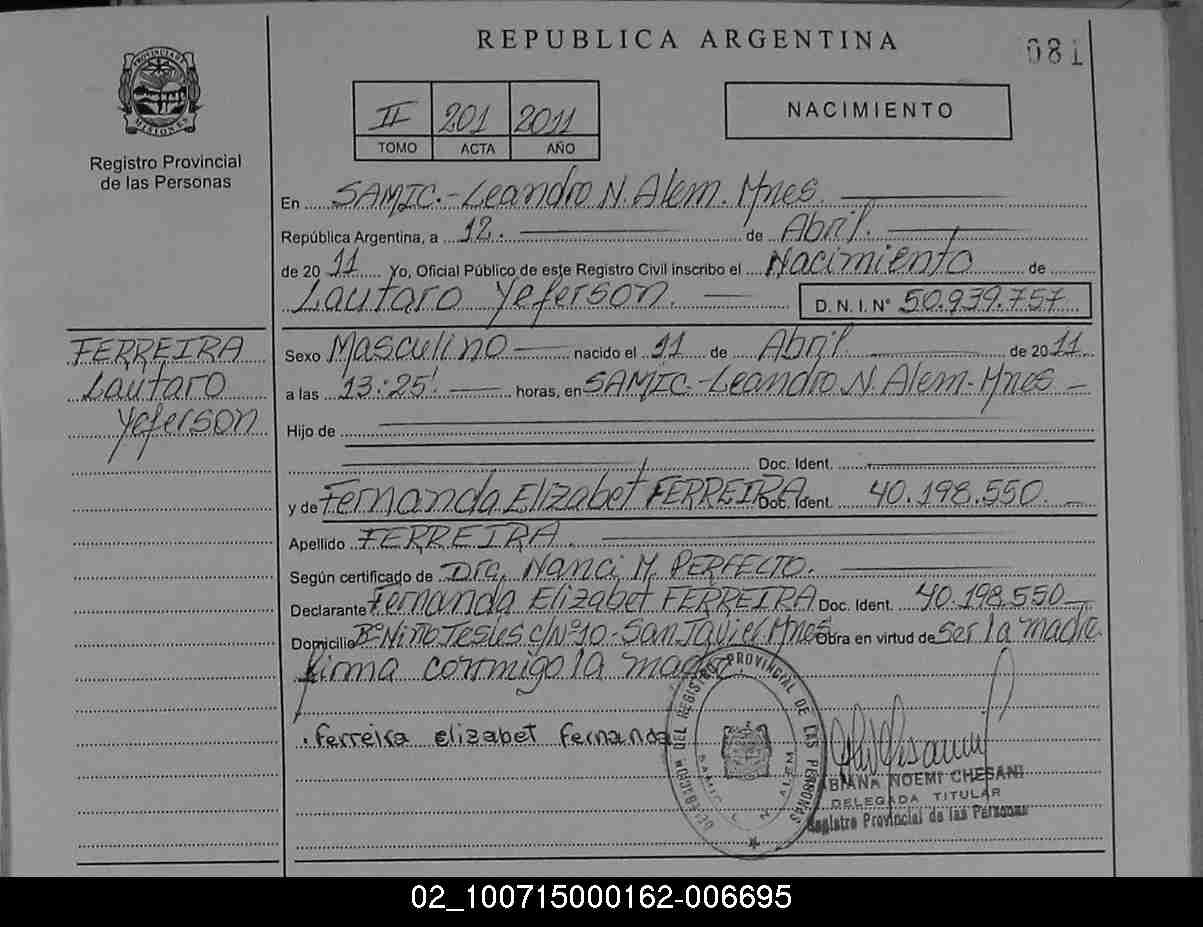 REPUBLICA ARGENTINA
081
PROVINCIA DE
MISIONES
Registro Provincial
de las Personas
II 201 2011
TOMO ACTA AÑO
NACIMIENTO
En SAMIC.-Leandro N. Alem. Mnes.
República Argentina, a 12. de Abril.
de 2011 Yo, Oficial Público de este Registro Civil inscribo el Nacimiento de
Lautaro Yeferson. D.N.I.Nº 50.939.757
FERREIRA
Lautaro
Yeferson
Sexo Masculino nacido el 11 de Abril. de 2011
a las 13:25'. horas, en SAMIC.-Leandro N. Alem-Mnes
Hijo de
Doc. Ident.
y de Fernanda Elizabet FERREIRA Doc. Ident. 40.198.550.
Apellido FERREIRA
Según certificado de Dra. Nanci M. PERFECTO.
Declarante Fernanda Elizabet FERREIRA Doc. Ident. 40.198.550
Domicilio Bº Niño Jesús c/Nº10-San Javier Mnes Obra en virtud de Ser la madre
firma conmigo la madre
. ferreira elizabet fernanda
DEL REGISTRO PROVINCIAL DE LAS PERSONAS
SAMIC L. N. ALEM
FABIANA NOEMI CHESANI
DELEGADA TITULAR
Registro Provincial de las Personas
02_100715000162-006695